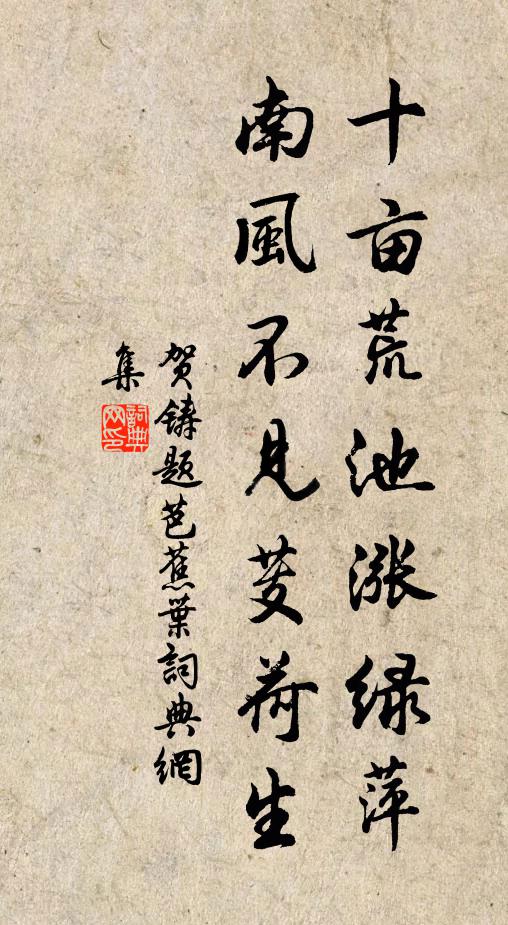 十亩荒池涨绿萍
南風不見芰荷生
贺铸题芭蕉葉詞典網
集
詞典網印